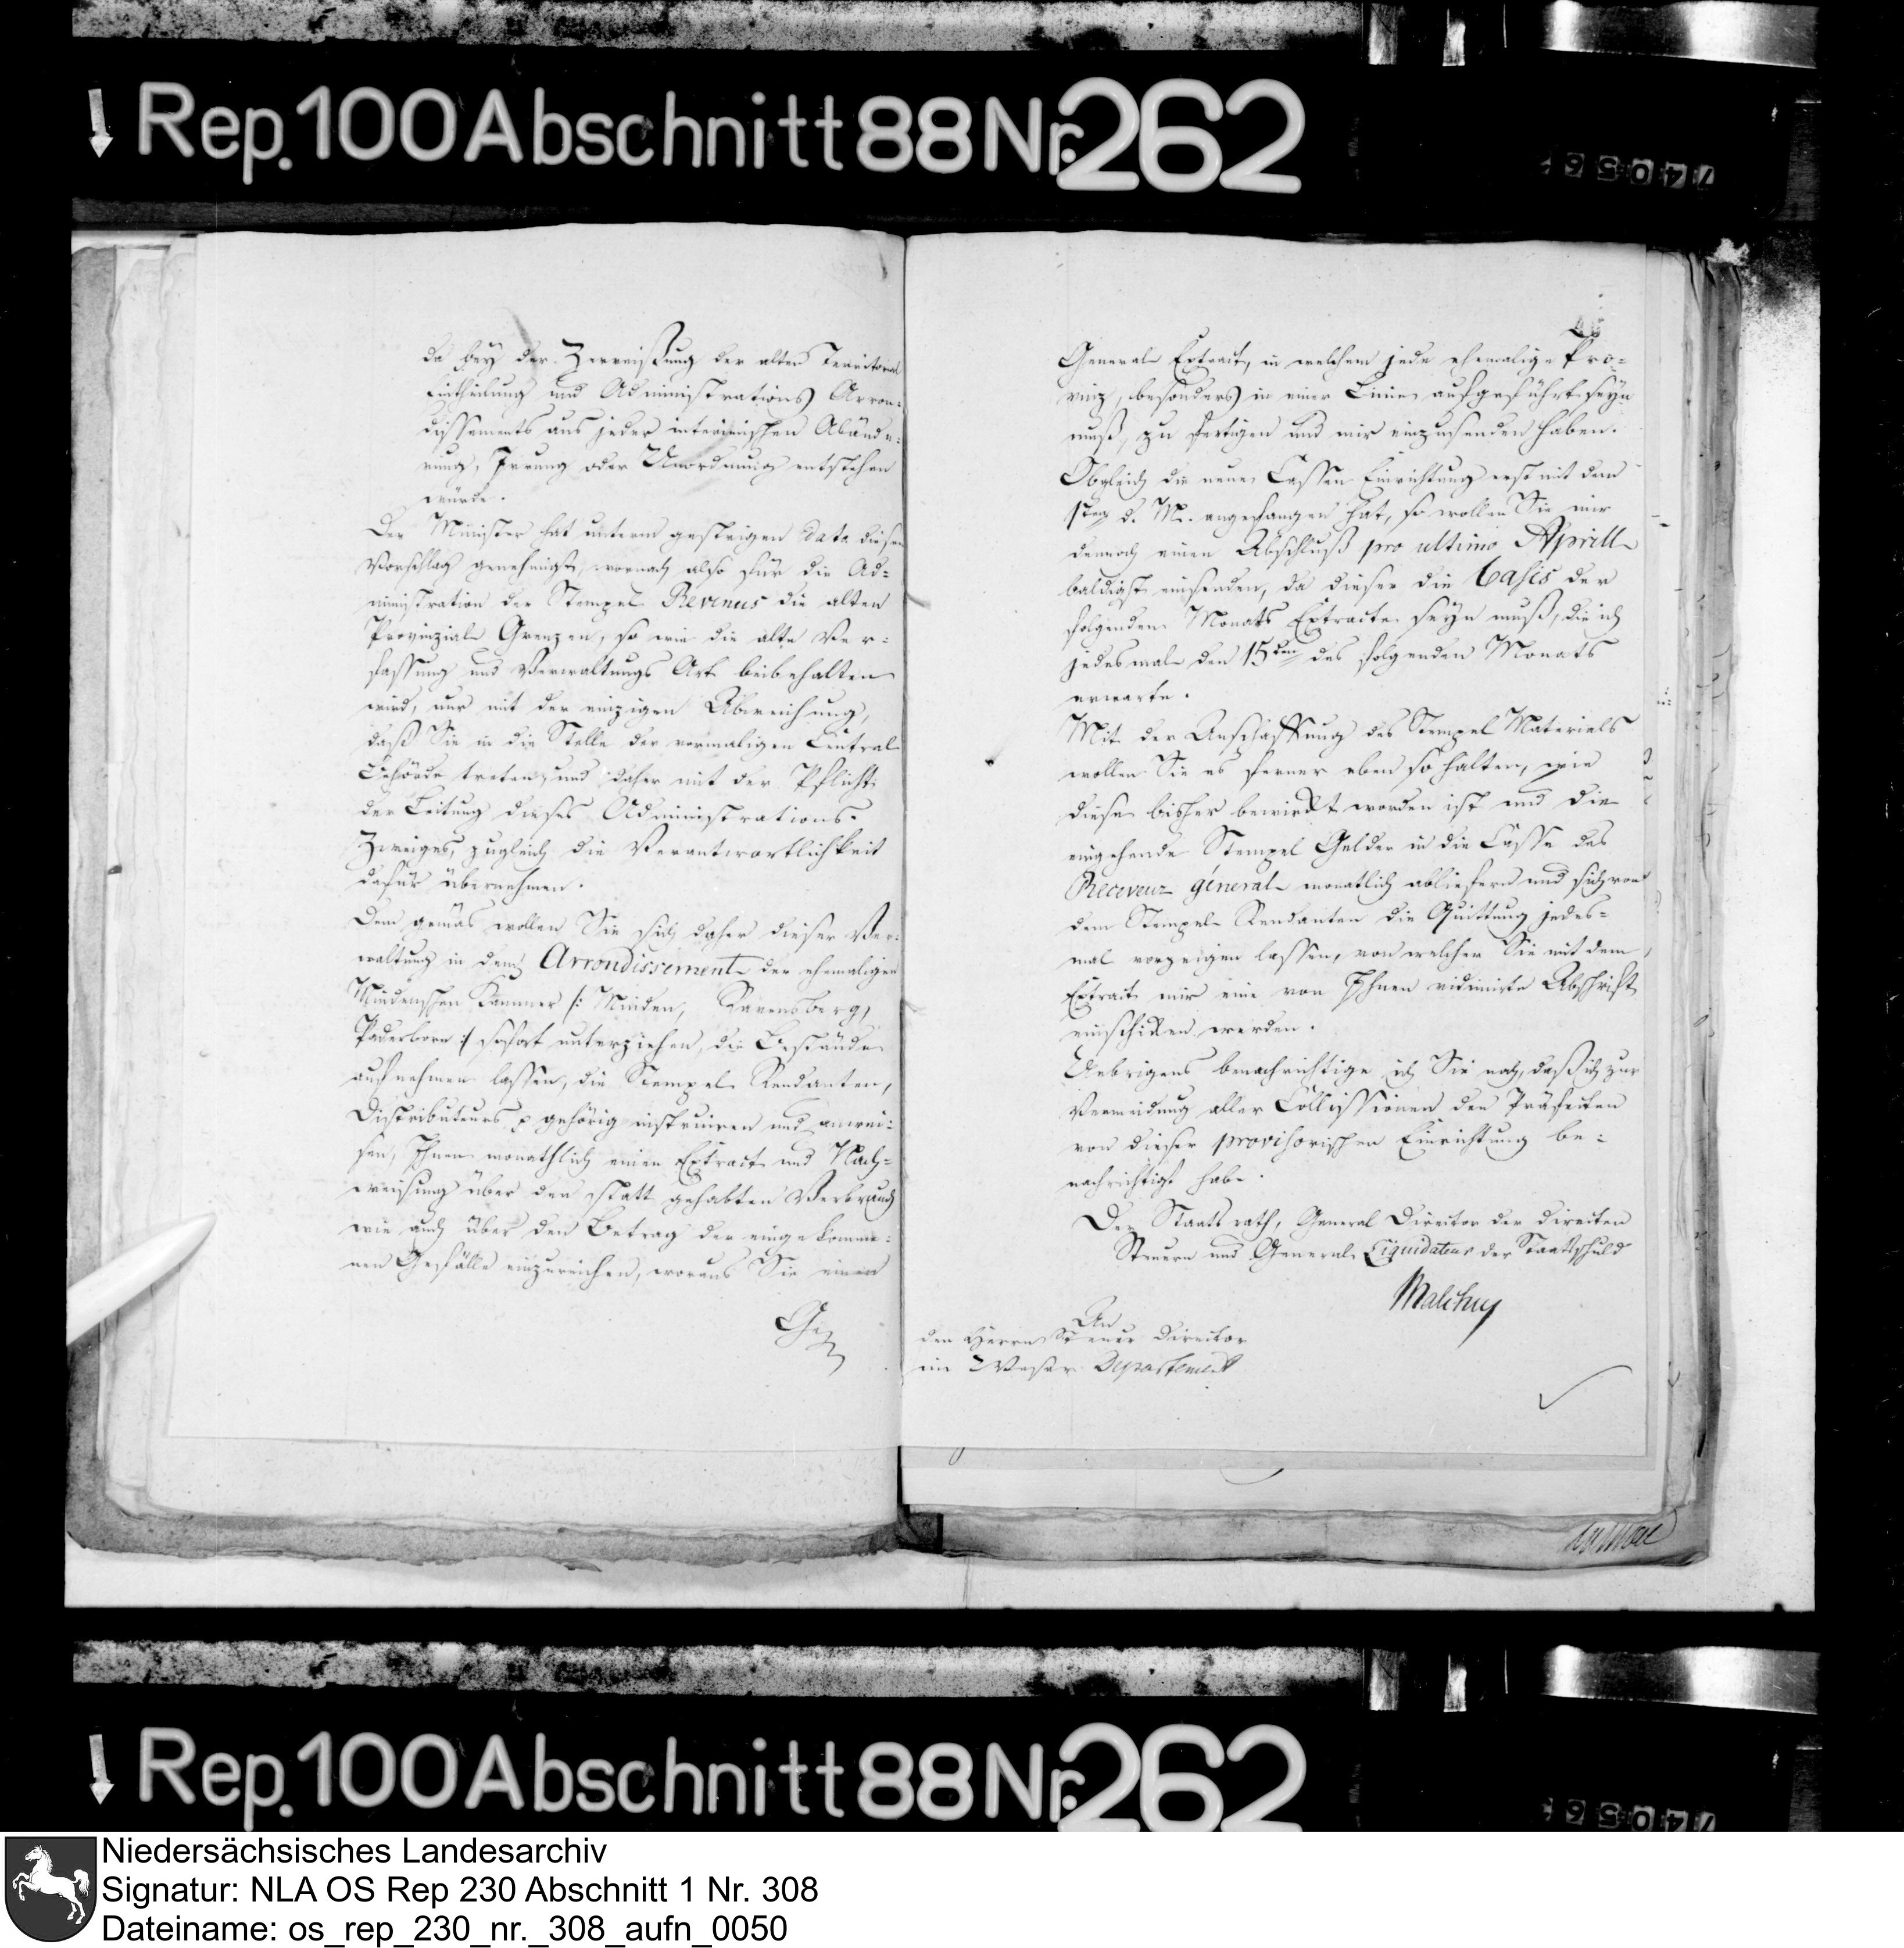 Rep. 100 Abschnitt 88 Nr. 262
da bey der Zerreißung der alten Territorial
Eintheilung und Administrations Arron-
dissements aus jeder interimischen Abände-
rung, Irrung oder Unordnung entstehen
würde.
Der Minister hat unterm gestrigen dato diesen
Vorschlag genehmigt, wornach also für die Ad-
ministration der Stempel Revenus die alten
Provinzial Grenzen, so wie die alte Ver-
fassung und Verwaltungs Art beibehalten
wird, nur mit der einzigen Abweichung,
daß Sie in die Stelle der vormaligen Central
Behörde treten, und daher mit der Pflicht
der Leitung dieses Administrations-
Zweiges, zugleich die Verantwortlichkeit
dafür übernehmen.
Dem gemäs wollen Sie sich daher dieser Ver-
waltung in dem Arrondissement der ehemaligen
Mindenschen Kammer /: Minden, Ravensberg,
Paderborn :/ sofort unterziehen, die Bestände
aufnehmen lassen, die Stempel Rendanten,
Distributeurs p gehörig instruiren und anwei-
sen, Ihnen monathlich einen Extract und Nach-
weisung über den statt gehabten Verbrauch
wie auch über den Betrag der eingekomme-
nen Gefälle einzureichen, woraus Sie einen
General Extract, in welchem jede ehemalige Pro-
vinz, besonders in einer Linie aufgeführt seyn
muß, zu fertigen und mir einzusenden haben.
Obgleich die neue Cassen Einrichtung erst mit dem
1ten d. M. angefangen hat, so wollen Sie mir
dennoch einen Abschluß pro ultimo Aprill
baldigst einsenden, da dieser die Basis der
folgenden Monats Extracte seyn muß, die ich
jedesmal den 15ten des folgenden Monats
erwarte.
Mit der Anschaffung des Stempel Materials
wollen Sie es ferner eben so halten, wie
diese bisher bewirkt worden ist und die
eingehende Stempel Gelder in die Casse des
Receveur général monatlich abliefern und sich von
dem Stempel Rendanten die Quittung jedes-
mal vorzeigen lassen, von welcher Sie mit dem
Extract mir eine von Ihnen vidimirte Abschrift
einschicken werden.
Uebrigens benachrichtige ich Sie noch, daß ich zur
Vermeidung aller Collissionen den Präfecten
von dieser provisorischen Einrichtung be-
nachrichtigt habe.
Der Staatsrath, General Director der directen
Steuern und General Liquidateur der Staatsschuld
Malchus
An
den Herrn Steuer Director
im Weser Departement
Rep. 100 Abschnitt 88 Nr. 262
Niedersächsisches Landesarchiv
Signatur: NLA OS Rep 230 Abschnitt 1 Nr. 308
Dateiname: os_rep_230_nr._308_aufn_0050